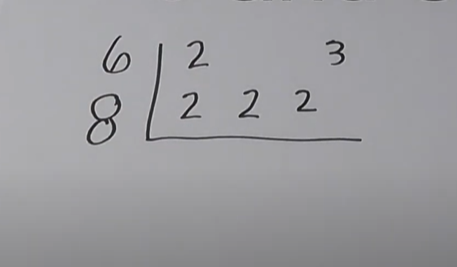 6 | 2 3
8 | 2 2 2